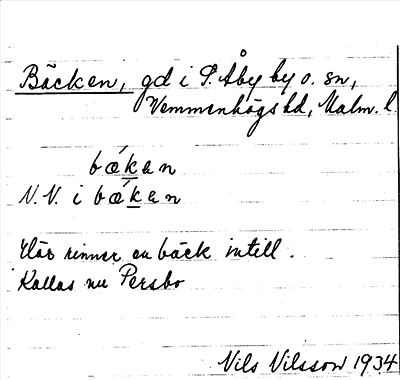 Bäcken, gd i S. Åby by o. sn,
Vemmenhögs hd, Malm. l.
bǽken
N.V. i bǽken
Här rinner en bäck intill.
Kallas nu Persbo
Nils Nilsson 1934